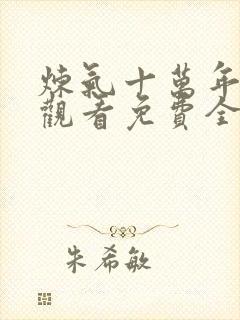 煉氣十萬年
觀看免費全
朱希敏